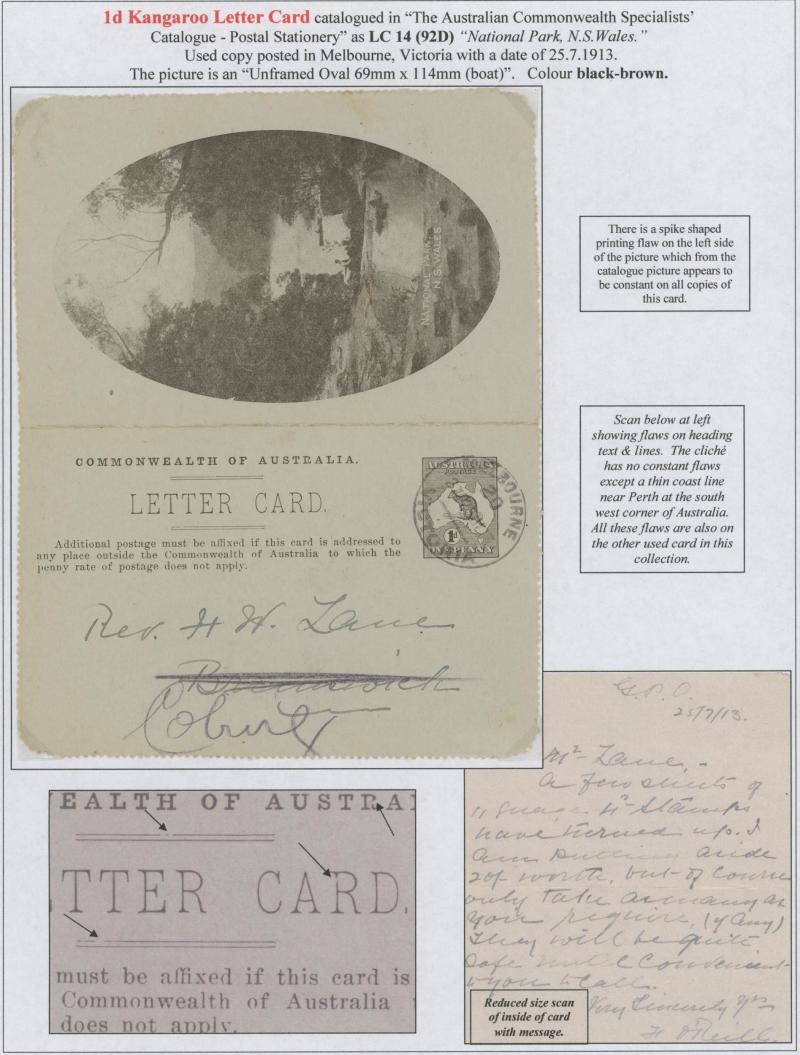 1d Kangaroo Letter Card catalogued in “The Australian Commonwealth Specialists’
Catalogue - Postal Stationery” as LC 14 (92D) “National Park, N.S.Wales.”
Used copy posted in Melbourne, Victoria with a date of 25.7.1913.
The picture is an “Unframed Oval 69mm x 114mm (boat)”. Colour black-brown.
NATIONAL PARK
N.S.WALES.
There is a spike shaped
printing flaw on the left side
of the picture which from the
catalogue picture appears to
be constant on all copies of
this card.
COMMONWEALTH OF AUSTRALIA.
LETTER CARD.
Additional postage must be affixed if this card is addressed to
any place outside the Commonwealth of Australia to which the
penny rate of postage does not apply.
AUSTRALIA
POSTAGE
1d
ONE PENNY
MELBOURNE
VICTORIA
Rev. H W. Lane
Brunswick
Coburg
Scan below at left
showing flaws on heading
text & lines. The cliché
has no constant flaws
except a thin coast line
near Perth at the south
west corner of Australia.
All these flaws are also on
the other used card in this
collection.
EALTH OF AUSTRA
TTER CARD.
must be affixed if this card is
Commonwealth of Australia
does not apply.
G.P.O.
25/7/13.
Mr Lane,-
A few sheets of
Stamps
have turned up. I
am putting aside
worth, but of course
only take as many as
you require, (if any)
They will be quite
safe until convenient
to you to call.
Very Sincerely Yrs
H O'Reill
Reduced size scan
of inside of card
with message.